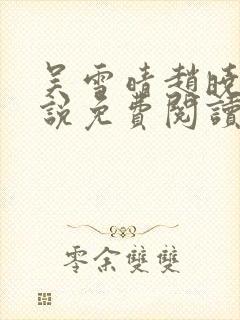 吴雪晴趙曉
說免費閱讀
零余雙雙